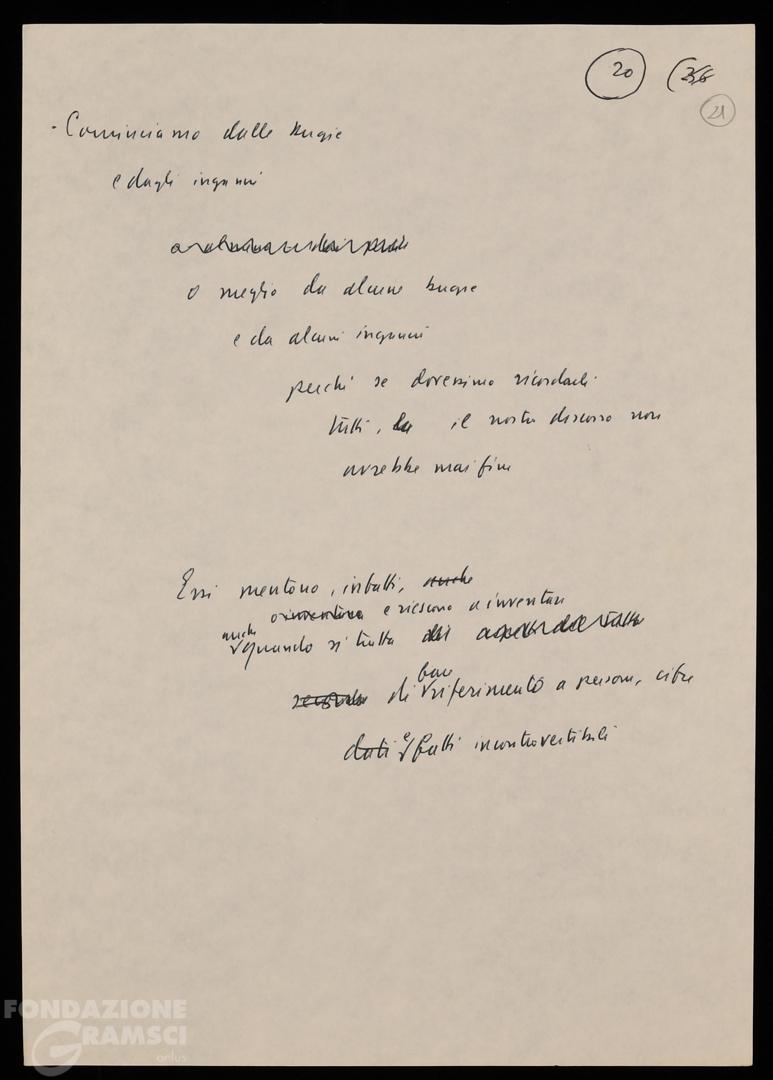 20
21
- Cominciamo dalle bugie
e dagli inganni
o meglio da alcune bugie
e da alcuni inganni
perché se dovessimo ricordarli
tutti, il nostro discorso non
avrebbe mai fine
Essi mentono, infatti, anche
o inventano e riescono a inventare
anche
quando si tratta di
fare
di riferimento a persone, cifre
dati e fatti incontrovertibili
FONDAZIONE
GRAMSCI
onlus